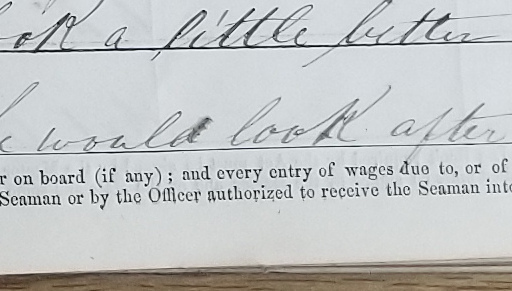 ook a little better
would look after
r on board (if any); and every entry of wages due to, or of
Seaman or by the Officer authorized to receive the Seaman into